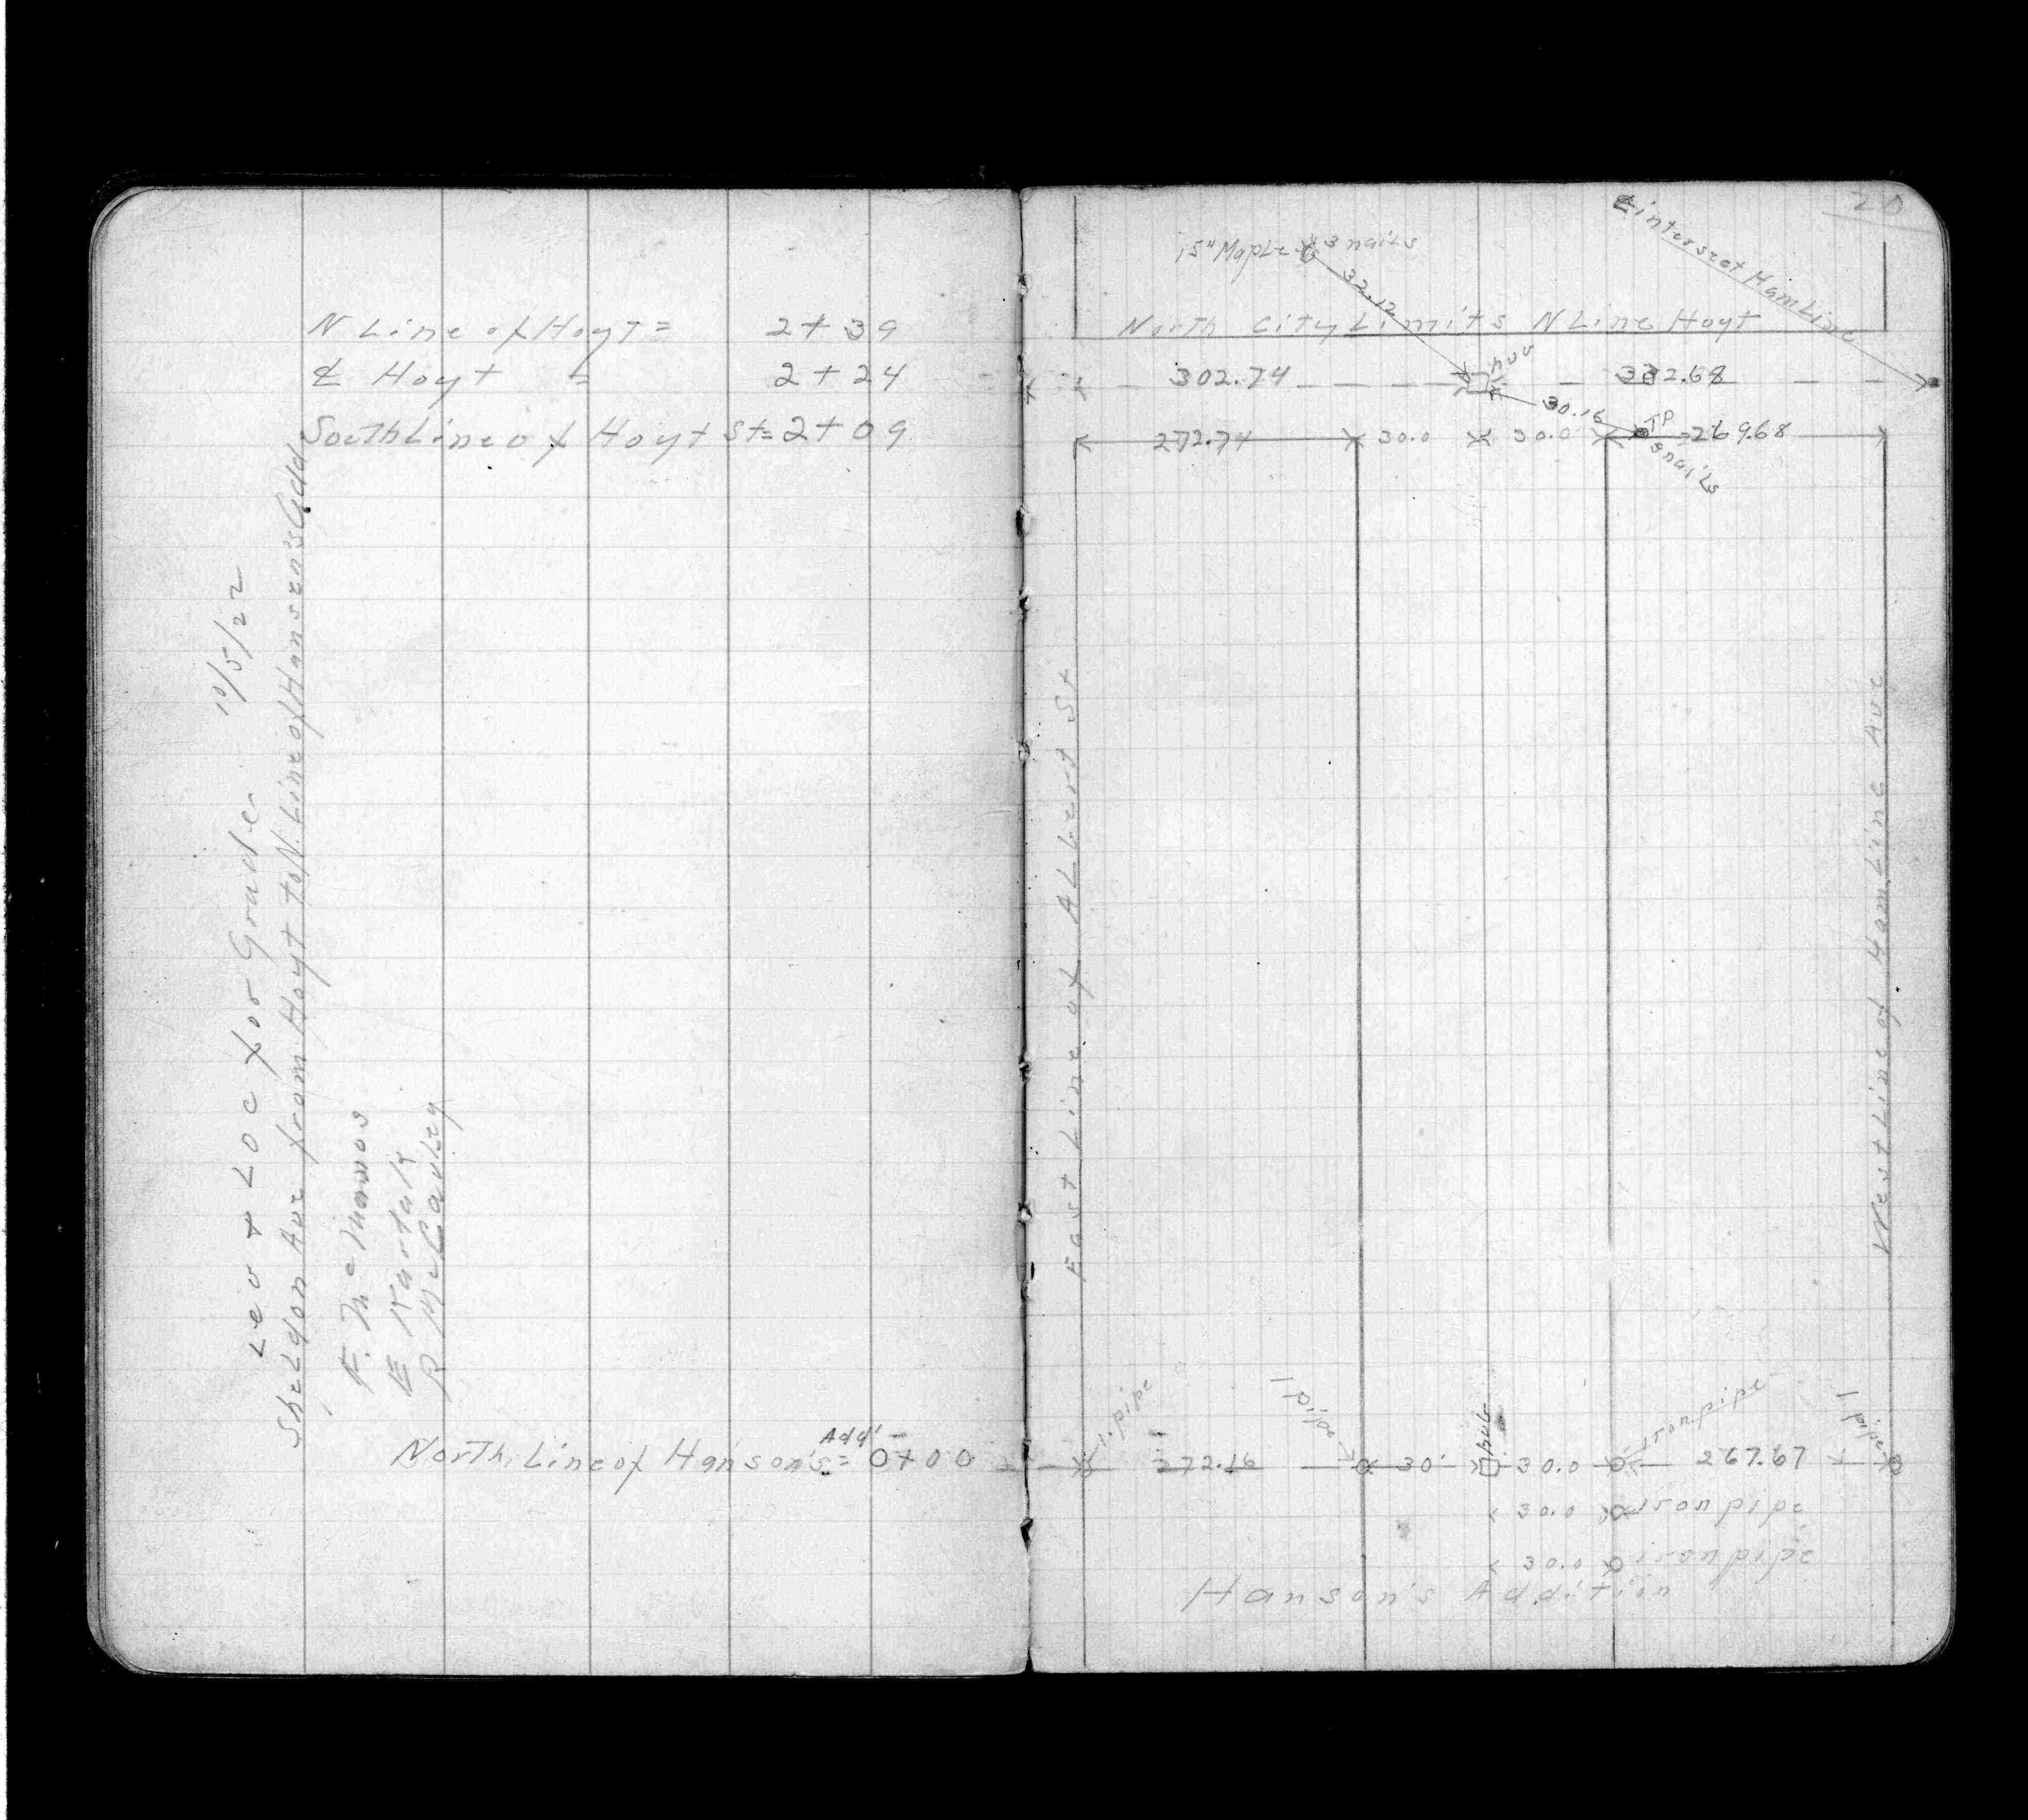 N Line of Hoyt = 2+39
℄ Hoyt = 2+24
South Line of Hoyt St = 2+09
10/5/22
Lev + Loc for Grade
Sheldon Ave from Hoyt to N. Line of Hansen's Add.
F. McManos
E
R McCauley
Add'
North Line of Hanson's = 0+00
20
℄ intersect HamLine
15" Maple 3 nails
33.12
North City Limits N Line Hoyt
302.74 Hub 332.68
30.16 TP
272.74 30.0 30.0 269.68
3 nails
East Line of Albert St
West Line of HamLine Ave
I. pipe I pipe Hub Iron pipe I pipe
272.16 30' 30.0 267.67
30.0 Iron pipe
30.0 iron pipe
Hanson's Addition